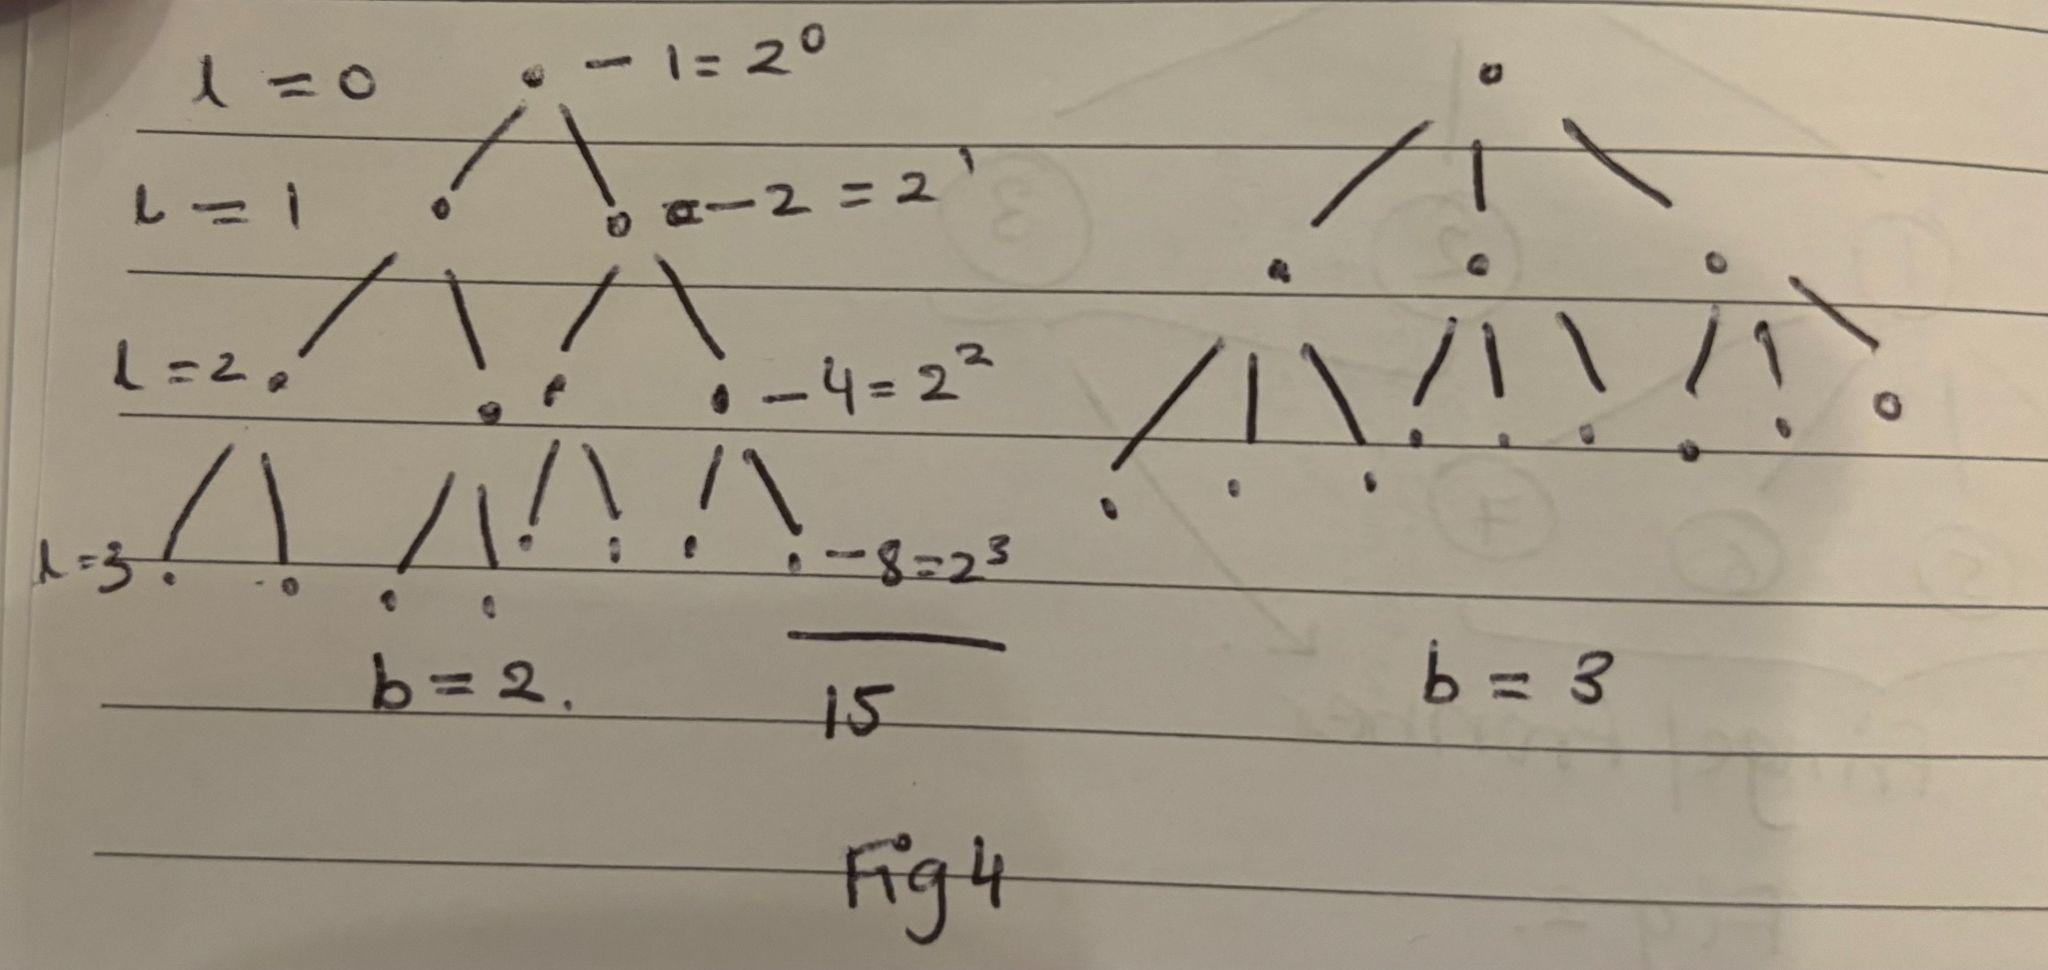 l = 0 - 1 = 2⁰
l = 1 - 2 = 2¹
l = 2 - 4 = 2²
l = 3 - 8 = 2³
15
b = 2.
b = 3
Fig 4